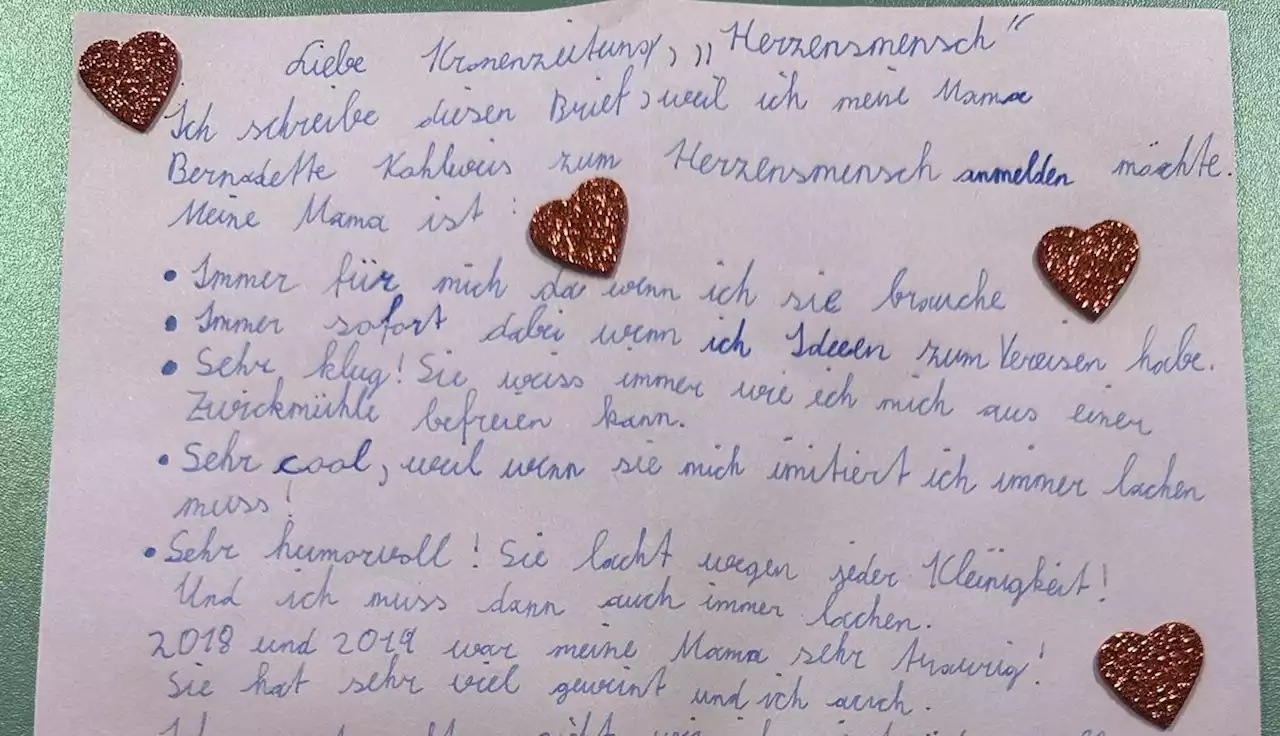 Liebe Kronenzeitung, „Herzensmensch“
Ich schreibe diesen Brief, weil ich meine Mama
Bernadette Kahlweis zum Herzensmensch anmelden möchte.
Meine Mama ist :
• Immer für mich da wenn ich sie brauche
• Immer sofort dabei wenn ich Ideen zum Vereisen habe.
• Sehr klug! Sie weiss immer wie ich mich aus einer
Zwickmühle befreien kann.
• Sehr cool, weil wenn sie mich imitiert ich immer lachen
muss!
• Sehr humorvoll! Sie lacht wegen jeder Kleinigkeit!
Und ich muss dann auch immer lachen.
2018 und 2019 war meine Mama sehr traurig!
Sie hat sehr viel geweint und ich auch.